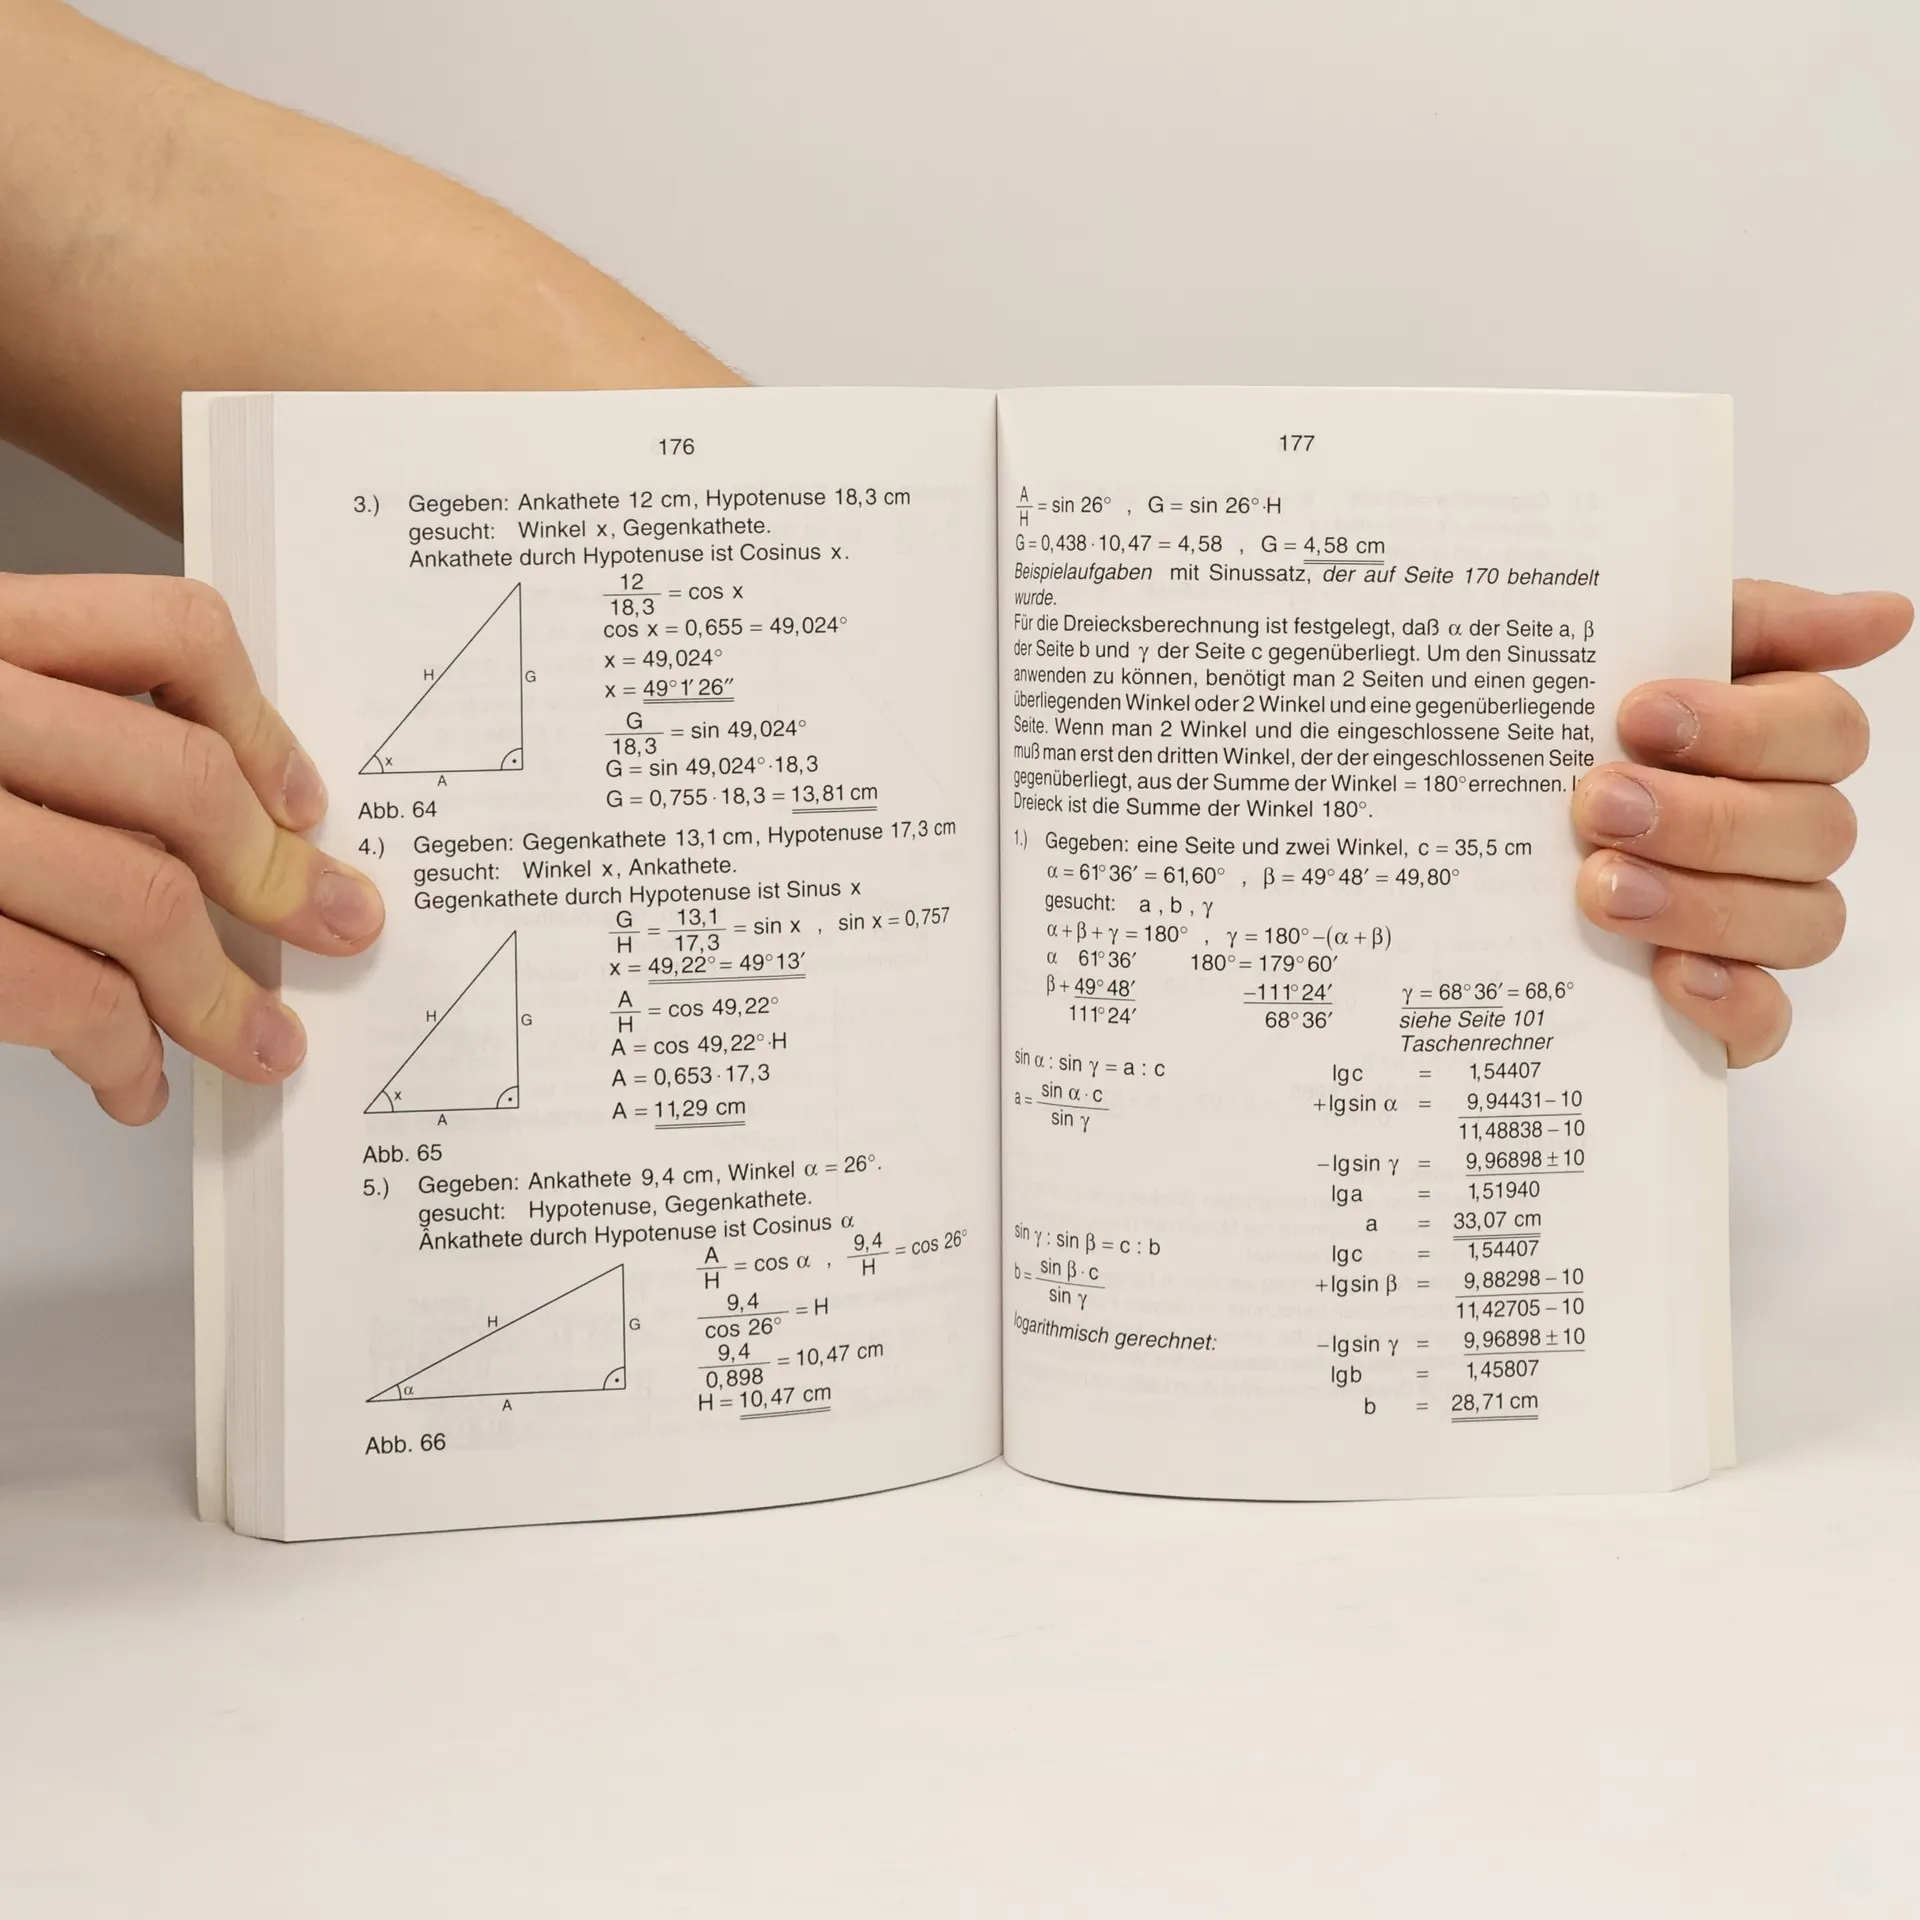 176
3.) Gegeben: Ankathete 12 cm, Hypotenuse 18,3 cm
gesucht: Winkel x, Gegenkathete.
Ankathete durch Hypotenuse ist Cosinus x.
12/18,3 = cos x
cos x = 0,655 = 49,024°
x = 49,024°
x = 49° 1′ 26″
G/18,3 = sin 49,024°
G = sin 49,024° · 18,3
G = 0,755 · 18,3 = 13,81 cm
H
G
x
A
Abb. 64
4.) Gegeben: Gegenkathete 13,1 cm, Hypotenuse 17,3 cm
gesucht: Winkel x, Ankathete.
Gegenkathete durch Hypotenuse ist Sinus x
G/H = 13,1/17,3 = sin x , sin x = 0,757
x = 49,22° = 49° 13′
A/H = cos 49,22°
A = cos 49,22° · H
A = 0,653 · 17,3
A = 11,29 cm
H
G
x
A
Abb. 65
5.) Gegeben: Ankathete 9,4 cm, Winkel α = 26°.
gesucht: Hypotenuse, Gegenkathete.
Ânkathete durch Hypotenuse ist Cosinus α
A/H = cos α , 9,4/H = cos 26°
9,4/cos 26° = H
9,4/0,898 = 10,47 cm
H = 10,47 cm
H
G
α
A
Abb. 66
177
A/H = sin 26° , G = sin 26° · H
G = 0,438 · 10,47 = 4,58 , G = 4,58 cm
Beispielaufgaben mit Sinussatz, der auf Seite 170 behandelt
wurde.
Für die Dreiecksberechnung ist festgelegt, daß α der Seite a, β
der Seite b und γ der Seite c gegenüberliegt. Um den Sinussatz
anwenden zu können, benötigt man 2 Seiten und einen gegen-
überliegenden Winkel oder 2 Winkel und eine gegenüberliegende
Seite. Wenn man 2 Winkel und die eingeschlossene Seite hat,
muß man erst den dritten Winkel, der der eingeschlossenen Seite
gegenüberliegt, aus der Summe der Winkel = 180° errechnen.
Dreieck ist die Summe der Winkel 180°.
1.) Gegeben: eine Seite und zwei Winkel, c = 35,5 cm
α = 61° 36′ = 61,60° , β = 49° 48′ = 49,80°
gesucht: a , b , γ
α + β + γ = 180° , γ = 180° – (α + β)
α 61° 36′ 180° = 179° 60′
β + 49° 48′ –111° 24′ γ = 68° 36′ = 68,6°
111° 24′ 68° 36′ siehe Seite 101
Taschenrechner
sin α : sin γ = a : c lg c = 1,54407
a = sin α · c/sin γ + lg sin α = 9,94431 – 10
11,48838 – 10
– lg sin γ = 9,96898 ± 10
lg a = 1,51940
a = 33,07 cm
sin γ : sin β = c : b lg c = 1,54407
b = sin β · c/sin γ + lg sin β = 9,88298 – 10
11,42705 – 10
logarithmisch gerechnet: – lg sin γ = 9,96898 ± 10
lg b = 1,45807
b = 28,71 cm